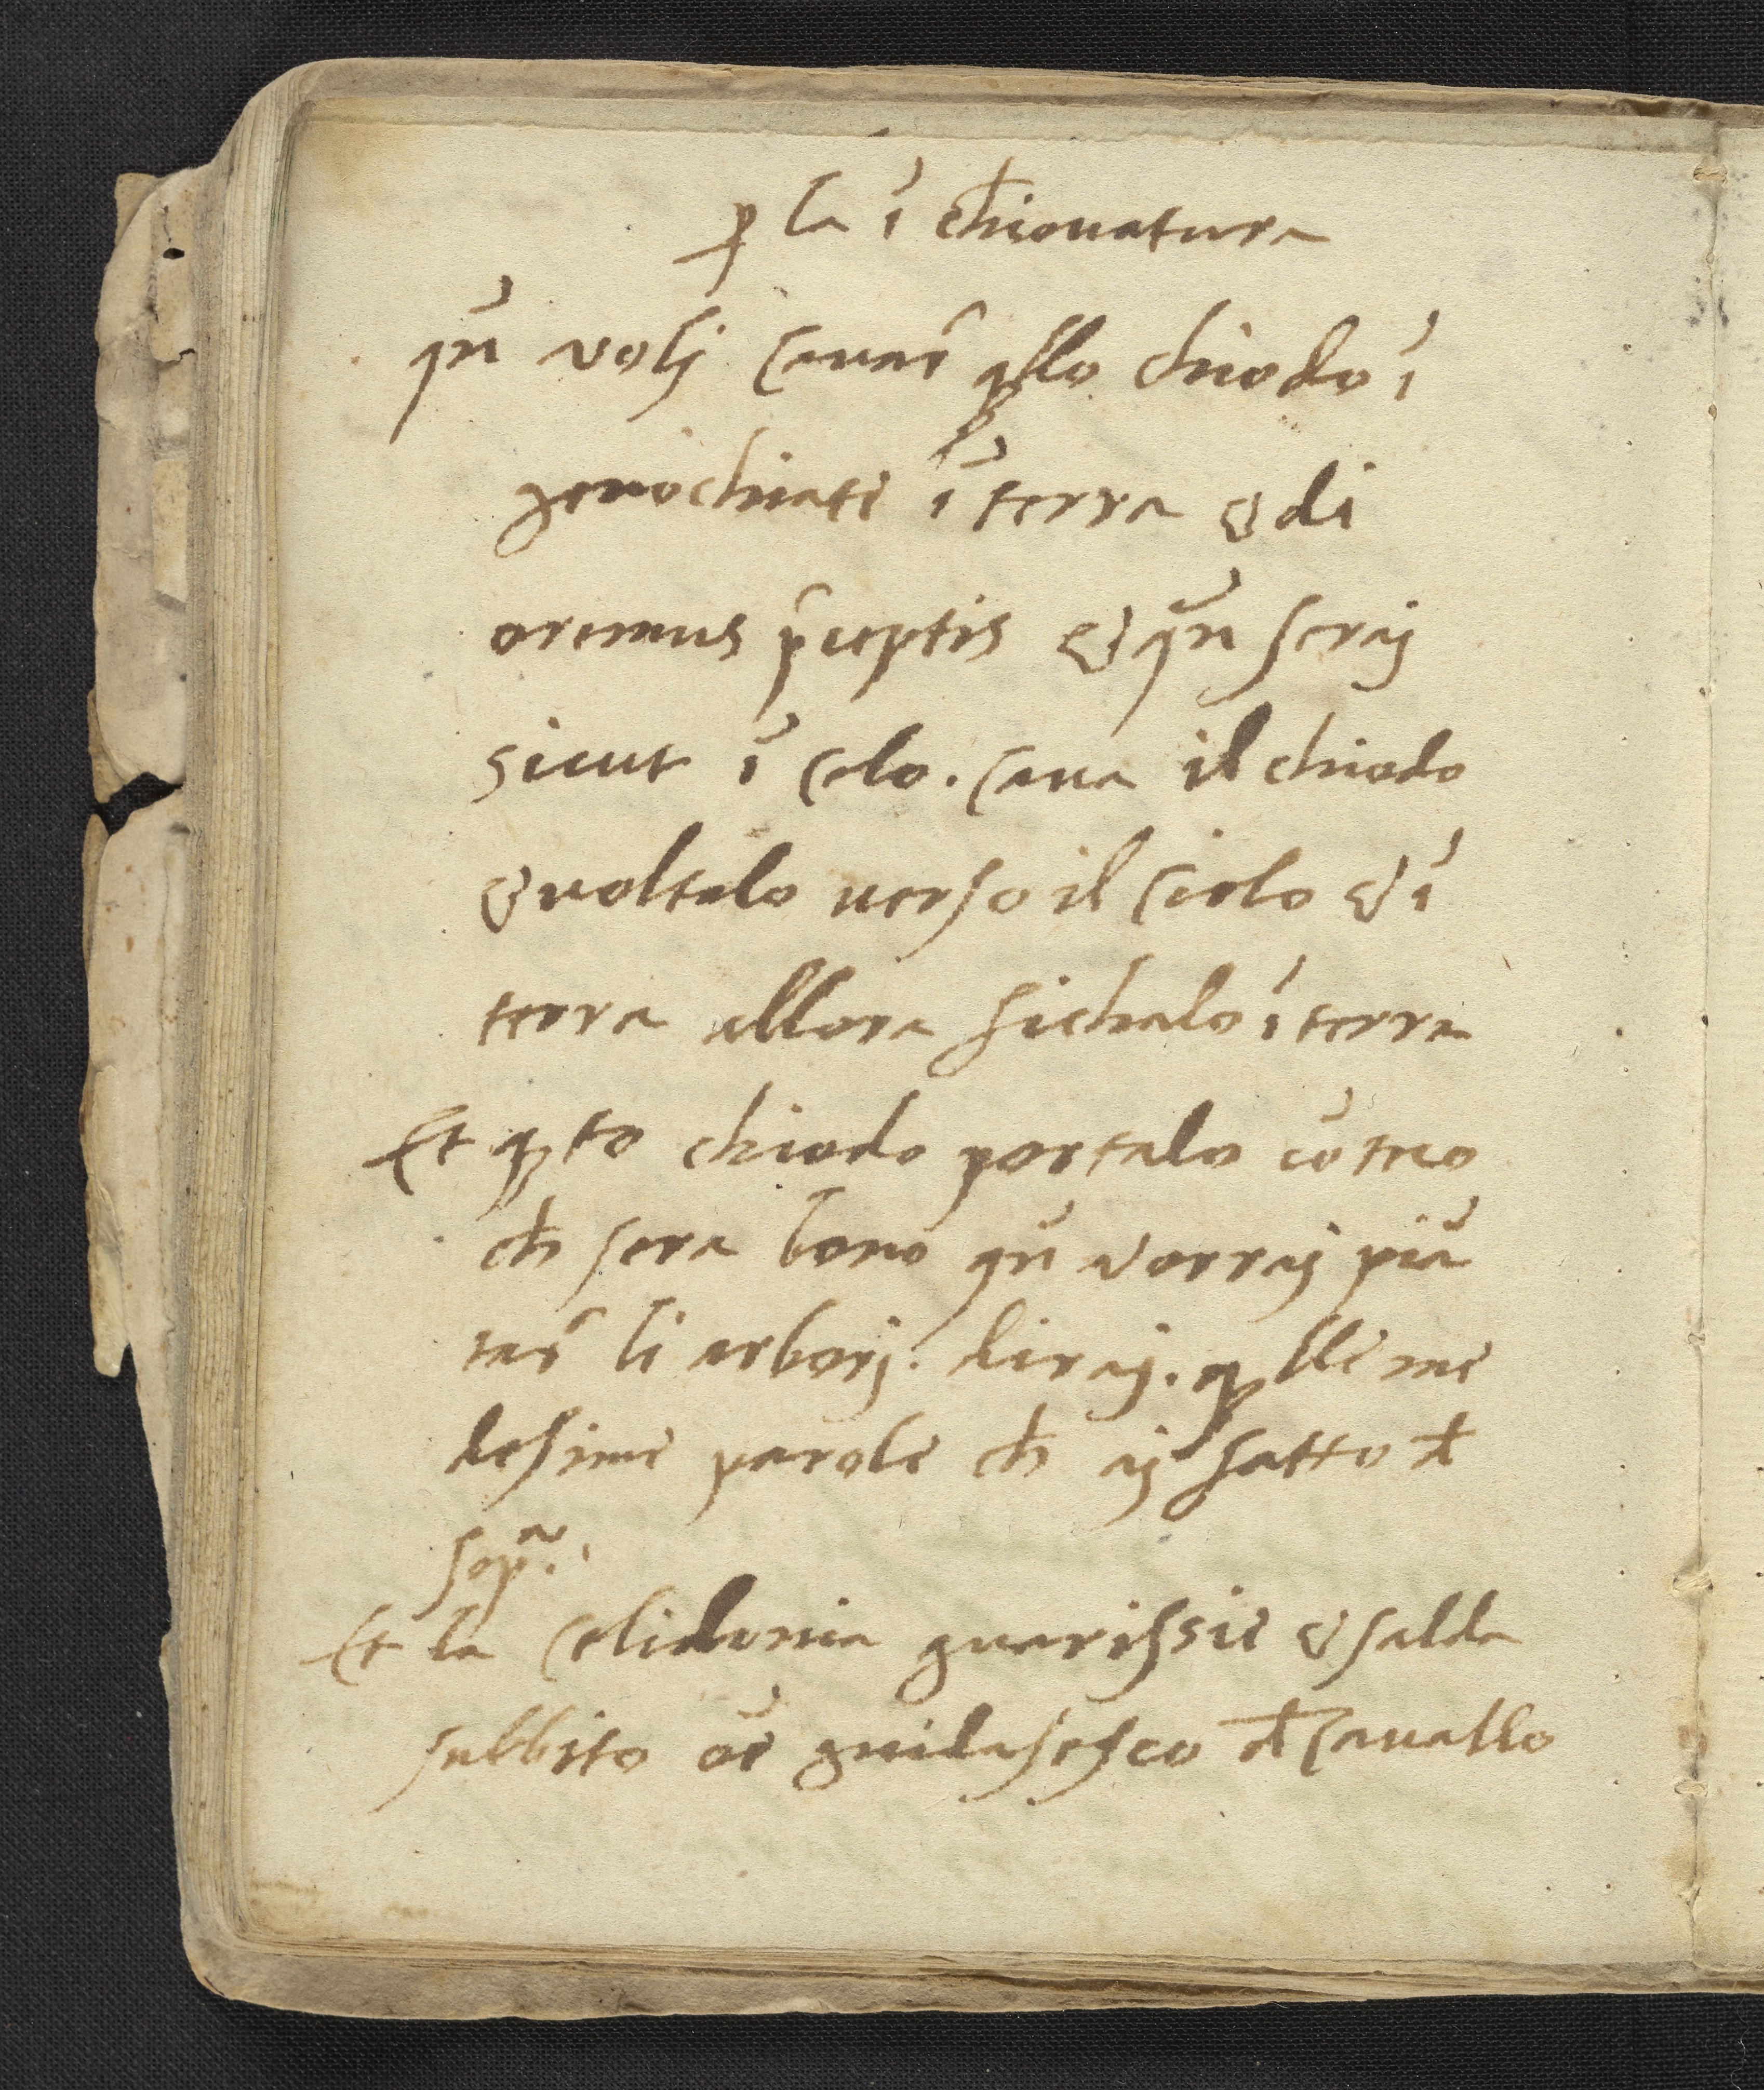 ꝑ la ī chiouatura
qn̄ uolj cauar̄ q̄llo chiodo ī
genochiate ī terra & di
oremus p̄ceptis & qn̄ seraj
sicut ī celo. caua il chiodo
& uoltalo uerso il cielo & ī
terra allora fichalo ī terra
Et qֽto chiodo portalo cō teco
ch̄ sera bono qn̄ vorraj piā
tar̄ li arborj. diraj. q̄lle me
desime parole ch̄ aj fatto d̄
sopᵃ.
Et la celidonia guarissie & salda
subbito oē guidalesco d̄ cauallo